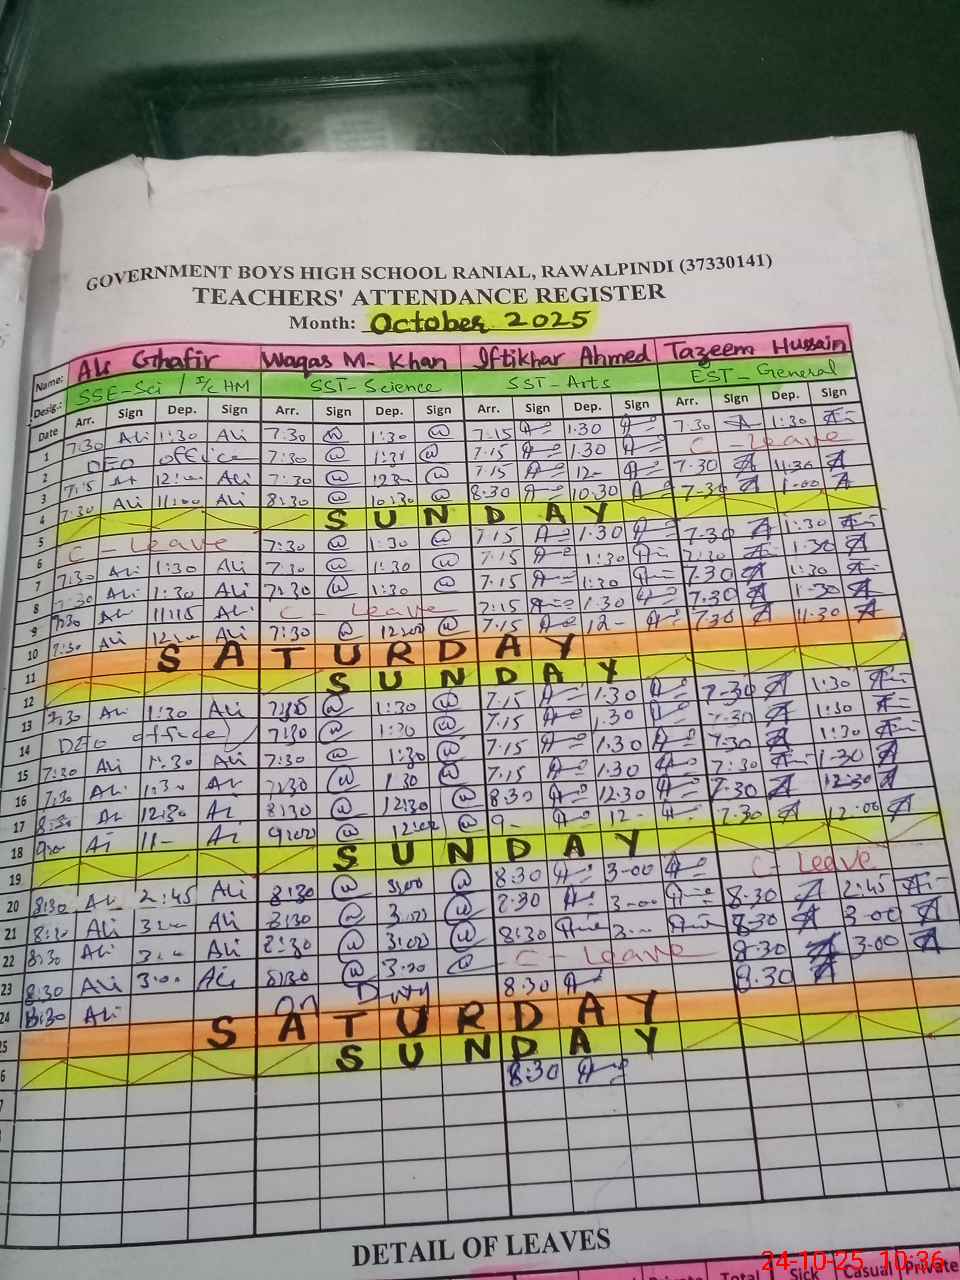 GOVERNMENT BOYS HIGH SCHOOL RANIAL, RAWALPINDI (37330141)
TEACHERS' ATTENDANCE REGISTER
Month: October 2025
Name: Ali Ghafir Waqas M. Khan Iftikhar Ahmed Tazeem Hussain
Desig: SSE-Sci / I/C HM SST-Science SST-Arts EST-General
Date Arr. Sign Dep. Sign Arr. Sign Dep. Sign Arr. Sign Dep. Sign Arr. Sign Dep. Sign
1 7:30 Ali 1:30 Ali 7:30 1:30 7.15 1.30 7.30 1:30
2 DEO office 7:30 1:30 7.15 1.30 C-Leave
3 12:00 Ali 7:30 7.15 12- 7.30 11.30
4 7:30 Ali 11:00 Ali 8:30 10:30 8.30 10.30 7-30 1.00
5 SUNDAY
6 C-Leave 7:30 1:30 7.15 1.30 7.30 1:30
7 7:30 Ali 1:30 Ali 7:30 1:30 7.15 1:30 7:30 1.30
8 7:30 Ali 1:30 Ali 7:30 1:30 7.15 1:30 7.30 1:30
9 7:30 Ali 11:15 Ali C-Leave 7:15 1.30 7.30 1.30
10 7:30 Ali 12:00 Ali 7:30 12:00 7.15 12- 7.30 11.30
11 SATURDAY
12 SUNDAY
13 7:30 Ali 1:30 Ali 7:30 1:30 7.15 1.30 7-30 1:30
14 DEO office 7:30 1:30 7.15 1.30 7.30 1:30
15 7:30 Ali 1:30 Ali 7:30 1:30 7.15 1.30 7.30 1:30
16 7:30 Ali 1:30 Ali 7:30 1:30 7.15 1.30 7:30 1.30
17 8:30 Ali 12:30 Ali 8:30 12:30 8:30 12.30 7.30 12:30
18 9:00 Ali 11- Ali 9:00 12:00 9- 12- 7.30 12.00
19 SUNDAY
20 8:30 Ali 2:45 Ali 8:30 3:00 8:30 3-00 C-Leave
21 8:30 Ali 3:00 Ali 8:30 3:00 8:30 3-00 8.30 2:45
22 8:30 Ali 3:00 Ali 8:30 3:00 8:30 3:00 8:30 3.00
23 8:30 Ali 3:00 Ali 8:30 3:00 C-Leave 8:30 3.00
24 8:30 Ali On Duty 8:30 8.30
25 SATURDAY
6 SUNDAY
8:30
DETAIL OF LEAVES
Total Sick Casual Private
24-10-25 10:36